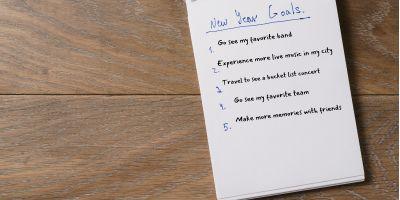 New Year Goals.
1. Go see my favorite band
2. Experience more live music in my city
3. Travel to see a bucket list concert
4. Go see my favorite team
5. Make more memories with friends